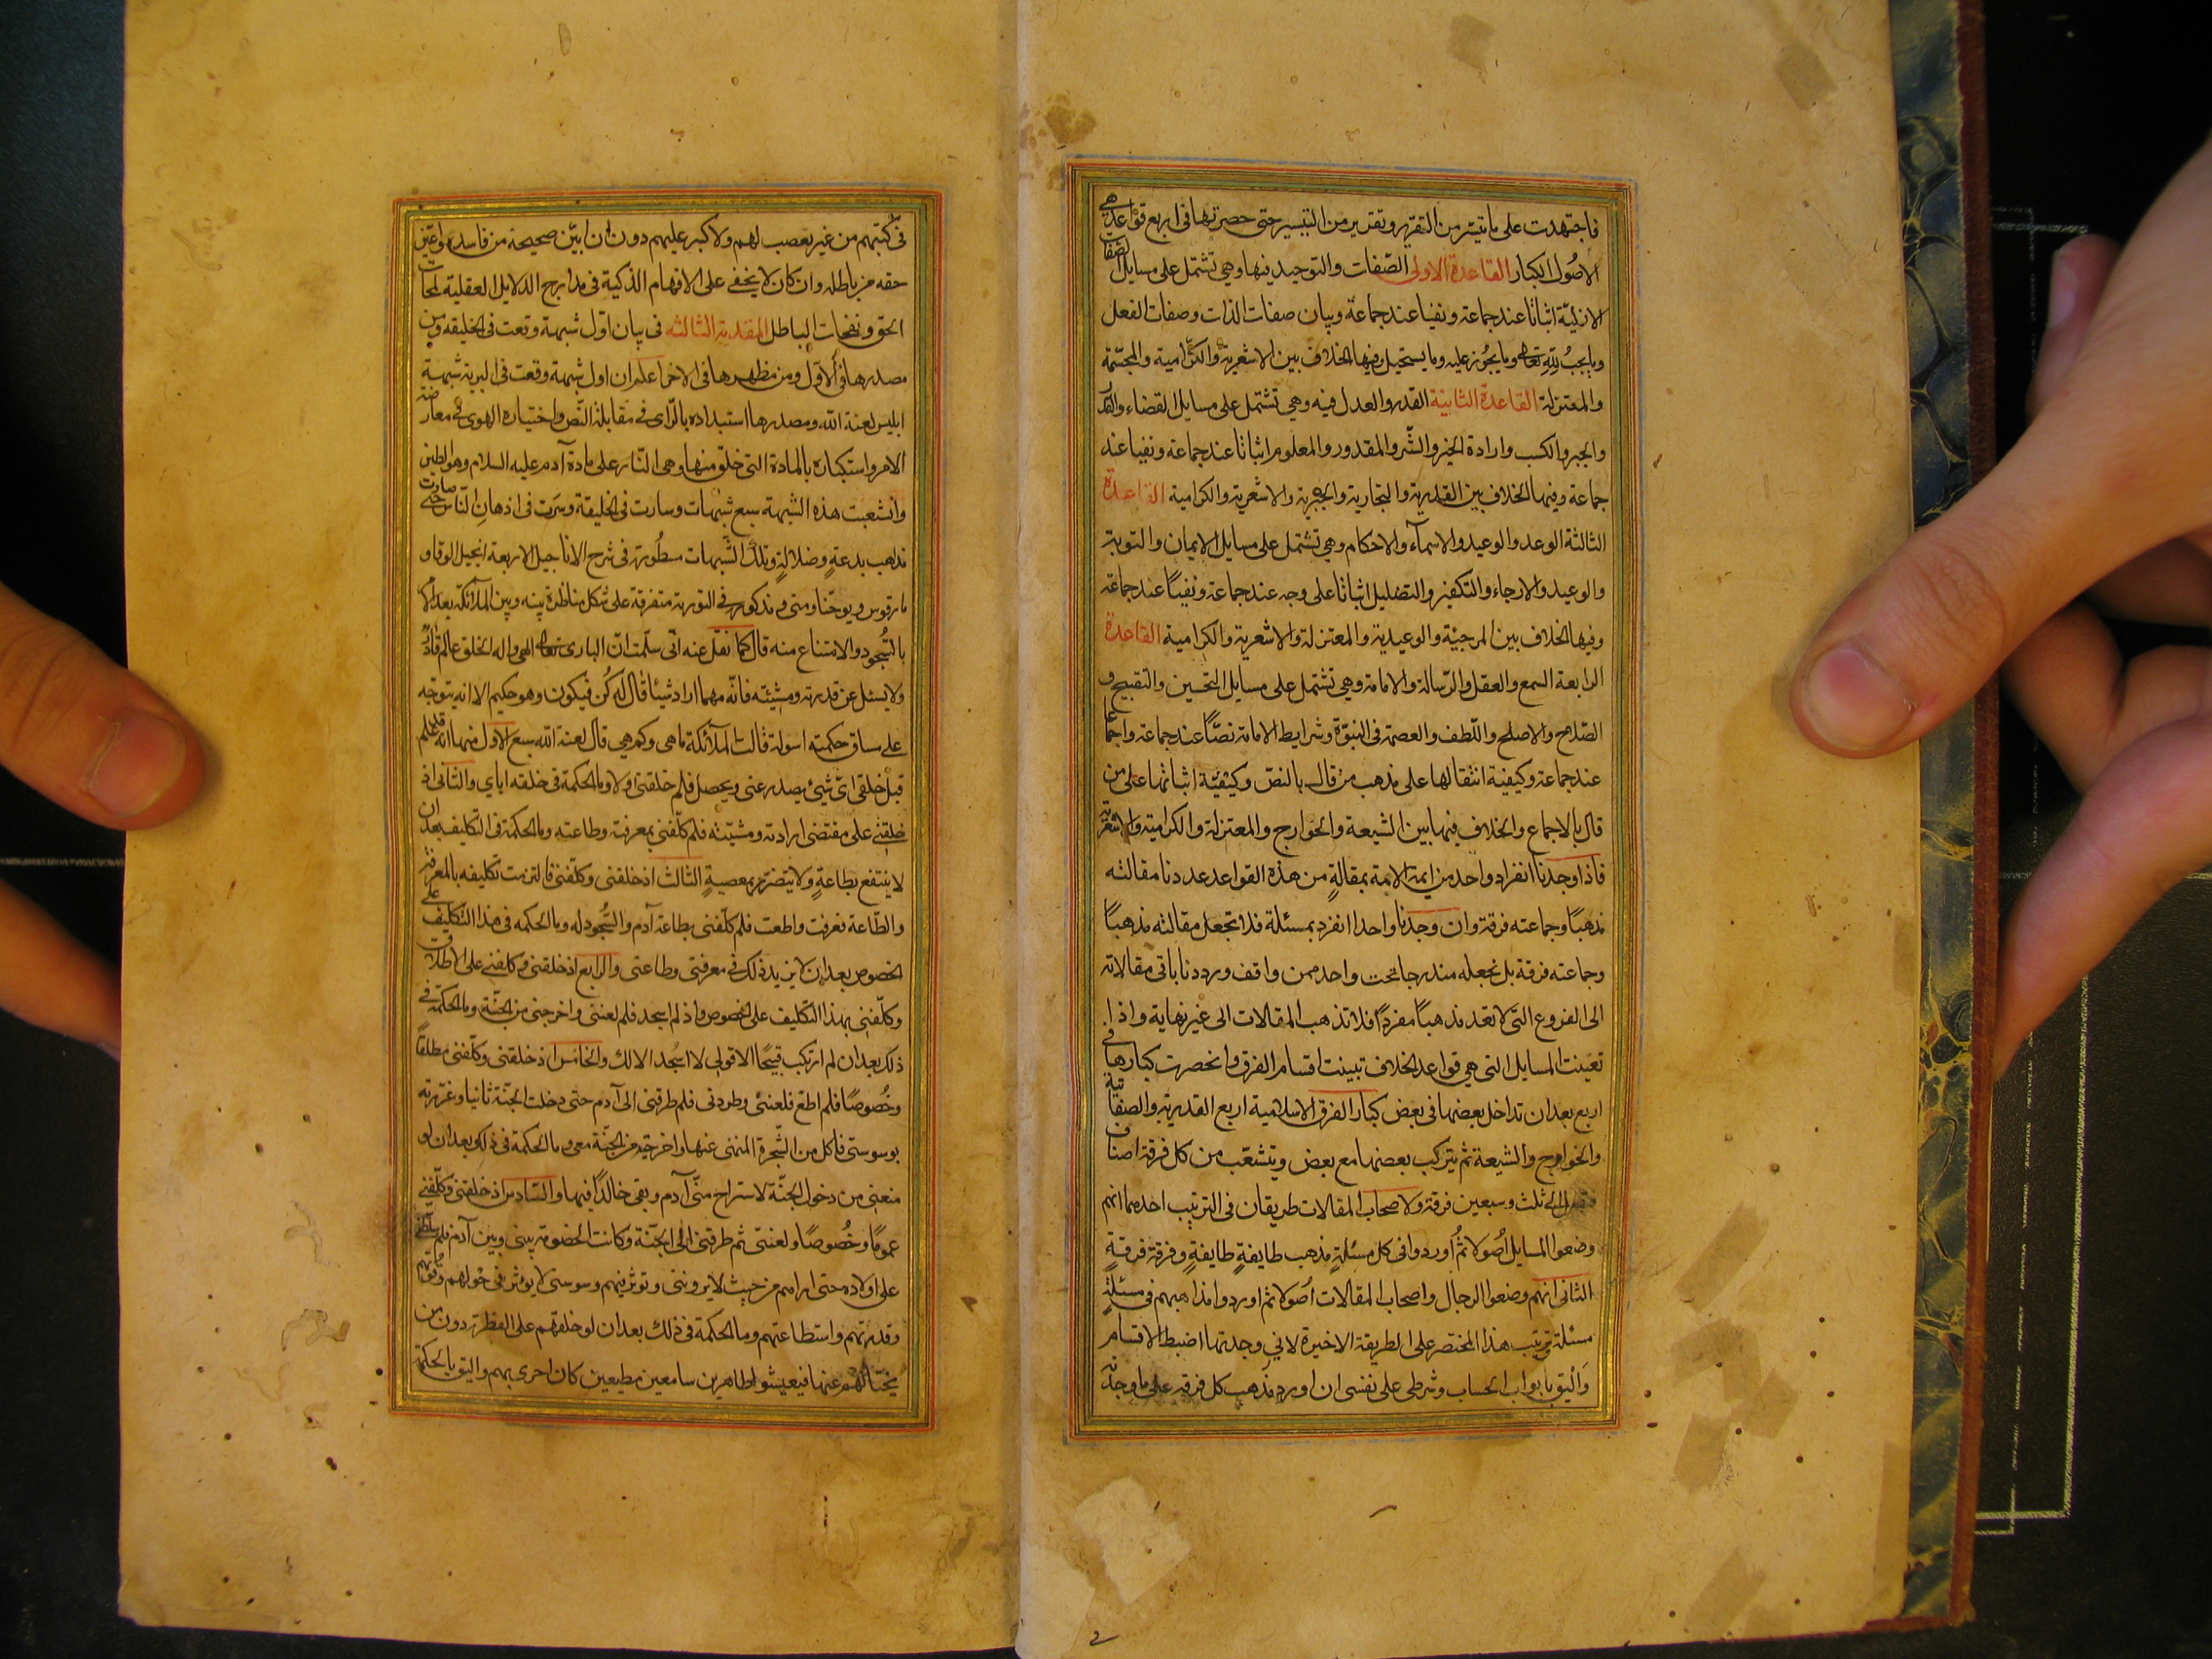 فاجتهدت على ما تيسر من التقرير وتقدير من التيسير حتى حصرتها في اربع قواعد هي
الاصول الكبار القاعدة الاولى الصفات والتوحيد فيها وهي تشتمل على مسايل الصفات
الازلية اثباتا عند جماعة ونفيا عند جماعة وبيان صفات الذات وصفات الفعل
وما يجب لله تعالى وما يجوز عليه وما يستحيل وفيها الخلاف بين الاشعرية والكرامية والمجسمة
والمعتزلة القاعدة الثانية القدر والعدل فيه وهي تشتمل على مسايل القضاء والقدر
والجبر والكسب وارادة الخير والشر والمقدور والمعلوم اثباتا عند جماعة ونفيا عند
جماعة وفيها الخلاف بين القدرية والنجارية والجبرية والاشعرية والكرامية القاعدة
الثالثة الوعد والوعيد والاسمآء والاحكام وهي تشتمل على مسايل الايمان والتوبة
والوعيد والارجاء والتكفير والتضليل اثباتا على وجه عند جماعة ونفيًا عند جماعة
وفيها الخلاف بين المرجئة والوعيدية والمعتزلة والاشعرية والكرامية القاعدة
الرابعة السمع والعقل والرسالة والامامة وهي تشتمل على مسايل التحسين والتقبيح و
الصلاح والاصلح واللطف والعصمة في النبوة وشرايط الامامة نصًّا عند جماعة واجماعًا
عند جماعة وكيفية انتقالها على مذهب من قال بالنص وكيفية اثباتها على من
قال بالاجماع والخلاف فيها بين الشيعة والخوارج والمعتزلة والكرامية والاشعرية
فاذا وجدنا انفراد واحد من ايمة الامة بمقالةٍ من هذه القواعد عددنا مقالته
مذهبًا وجماعته فرقة وان وجدنا واحدا انفرد بمسئلة فلا نجعل مقالته مذهبًا
وجماعته فرقة بل نجعله مندرجا تحت واحد ممن وافق ورددنا باقي مقالاته
الى الفروع التي لا تعد مذهبًا مفردًا فلا تذهب المقالات الى غير نهاية واذا
تعينت المسايل التي هي قواعد الخلاف تبينت اقسام الفرق وانحصرت كبارها في
اربع بعد ان تداخل بعضها في بعض كبار الفرق الاسلامية اربع القدرية والصفاتية
والخوارج والشيعة ثم يتركب بعضها مع بعض ويتشعّب من كل فرقة اصناف
فتصل الى ثلث وسبعين فرقة ولاصحاب المقالات طريقان في الترتيب احدهما انهم
وضعوا المسايل اُصُولا ثمُ اَوردوا في كل مسئلةٍ مذهب طايفةٍ طايفةٍ وفرقة فرقةٍ
الثاني انهم وضعوا الرجال واصحاب المقالات اُصُولا ثم اوردوا مذاهبهم في مسئلةٍ
مسئلة ترتيب هذا المختصر على الطريقة الاخيرة لاني وجدتها اضبط الاقسام
واَليَق بابواب الحساب وشرطى على نفسى ان اورد مذهب كل فرقة على ما وجدته
في كتبهم من غير تعصب لهم ولا كسر عليهم دون ان ابيّن صحيحة من فاسده واعيّن
حقه من باطله وان كان لا يخفى على الافهام الذكية في مدارج الدلايل العقلية لمحات
الحق ونفحات الباطل المقدمة الثالثه في بيان اوّل شبهة وقعت في الخليقه ومن
مصدرها في الاَوّل ومن مظهرها في الاخر اعلم ان اول شبهة وقعت في البرية شبهة
ابليس لعنة الله ومصدرها استبداده بالرّاى في مقابلة النّص واختياره الهوى في معارضة
الامر واستكباره بالمادة التى خلق منها وهى النّار على مادة آدم عليه السلام وهو الطين
وانشعبت هذه الشبهة سبع شبهات وسارت في الخليقة وسَرَت في اذهانِ الناس حتى صارت
مذاهب بدعةٍ وضلالةٍ وتلك الشّبهات مسطُورة في شرح الاناجيل الاربعة انجيل لوقا و
مارقوس ويوحنا ومتى ومذكورة في التورية متفرقة على شكل مناظرة بينه وبين الملآئكة بعد الامر
بالسُّجود والامتناع منه قال كما نقل عنه انّى سلّمت انّ البارى تعالى الهى واله الخلق عالم قادرٌ
ولا يسئل عن قدرته ومشيئته فانّه مهما اراد شيئا قال له كُن فيكون وهو حكيم الا انه يتوجّه
على مساق حكمته اسولة قالت الملآئكة ما هى وكم هي قال لعنة الله سبع الاول منها انه قد علم
قبل خلقى اىّ شئ يصدر عنى ويحصل فلم خلقنى اولا وما الحكمة في خلقه اياي والثانى اذ
خلقنى على مقتضى ارادته ومشيّته فلم كلّفني بمعرفته وطاعته وما الحكمة في التكليف بعد ان
لا ينتفع بطاعةٍ ولا يتضرّر بمعصيةٍ الثالث اذ خلقنى وكلّفنى فالتزمت تكليفه بالمعرفة
والطّاعة فعرفت واطعت فلم كلّفنى بطاعة آدم والسُّجود له وما الحكمه في هذا التّكليف على
الخصوص بعد ان لا يزيد ذلك في معرفتى وطاعتى والرابع اذ خلقنى وكلفنى على الاطلاق
وكلّفنى بهذا التكليف على الخصوص فاذ لم اسجد فلم لعننى واخرجنى من الجنّة وما الحكمة في
ذلك بعد ان لم ارتكب قبيحًا الا قولى لا اسجُد الا لك والخامس اذ خلقنى وكلّفنى مطلقًا
وخُصُوصًا فلم اطع فلعننى وطردنى فلم طرقنى الى آدم حتى دخلت الجنّة ثانيا وغررته
بوسوستى فاكل من الشّجرة المنهى عنها واخرجه من الجنّة معى وما الحكمة في ذلك بعد ان لو
منعنى من دخول الجنّة لاستراح منّى آدم وبقى خالدًا فيها والسّادس اذ خلقنى وكلّفني
عمومًا وخُصُوصًا ولعننى ثم طرقنى الى الجنّة وكانت الخصومة بينى وبين آدم فلم سلّطنى
على اولاده حتى اراهم من حيث لا يروننى وتوثر فيهم وسوستى لا يؤثر في حولهم وقوّتهم
وقدرتهم واستطاعتهم وما الحكمة في ذلك بعد ان لو خلقهم على الفطرة دون من
يحتالهم عنها فيعيشوا طاهرين سامعين مطيعين كان احرى بهم واليق بالحكمة